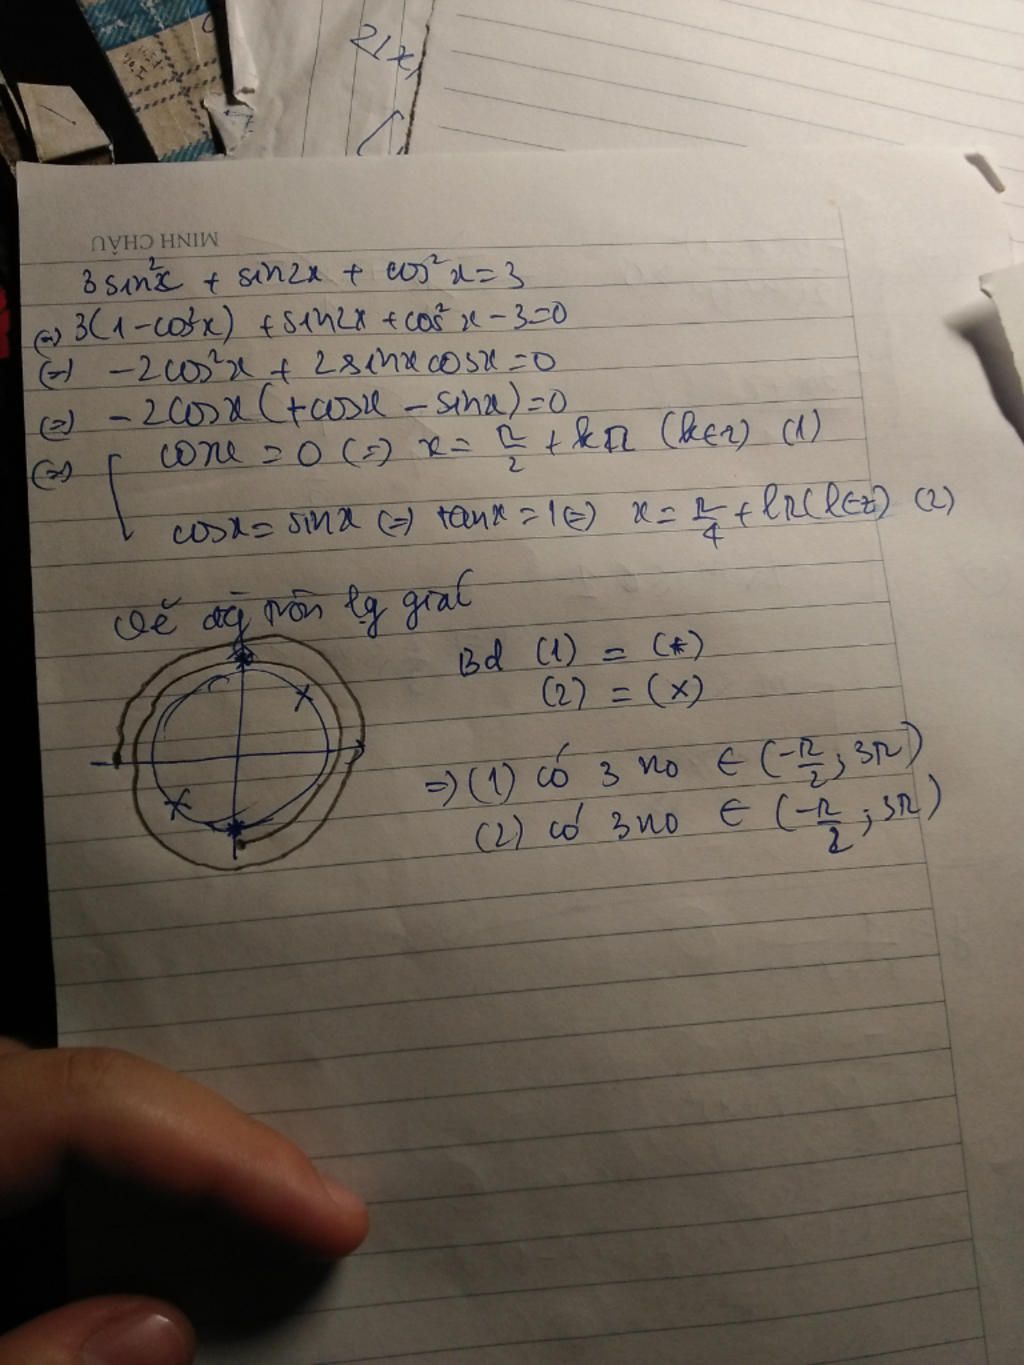 21x,
MINH CHÂU
3sin²x + sin2x + cos²x = 3
(=) 3(1-cos²x) + sin2x + cos²x - 3 = 0
(=) -2cos²x + 2sinxcosx = 0
(=) -2cosx(+cosx - sinx) = 0
(=) [ cosx = 0 (=) x = π/2 + kπ (k∈z) (1)
cosx = sinx (=) tanx = 1 (=) x = π/4 + lπ (l∈z) (2)
Vẽ đg tròn lg giác
Bd (1) = (*)
(2) = (x)
=> (1) có 3 no ∈ (-π/2; 3π)
(2) có 3 no ∈ (-π/2; 3π)